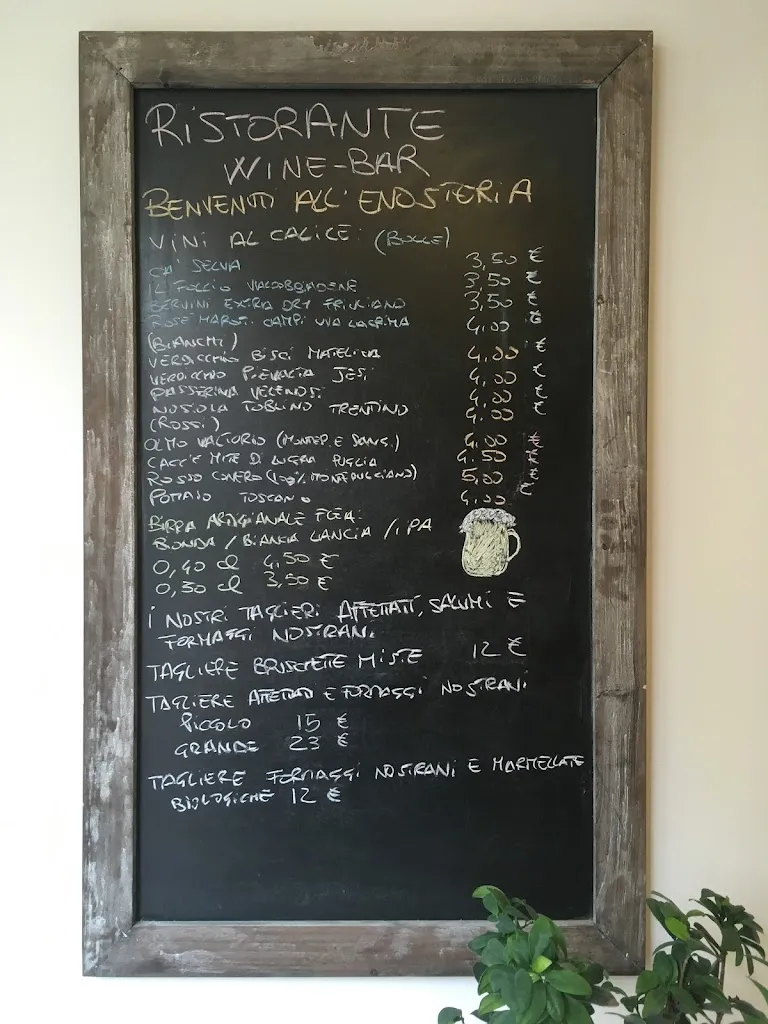 RISTORANTE
WINE-BAR
BENVENUTI ALL'ENOSTERIA
VINI AL CALICE: (BOLLE)
CA' SELVA 3,50 €
IL FOLLIO VALDOBBIADENE 3,50 €
BERVINI EXTRA DRY FRIULIANO 3,50 €
ROSÉ MAROTI CAMPI UVA LACRIMA 4,00 €
(BIANCHI)
VERDICCHIO BISCI MATELICA 4,00 €
VERDICCHIO PIEVALTA JESI 4,00 €
PASSERINA VELENOSI 4,00 €
NOSIOLA TOBLINO TRENTINO 4,00 €
(ROSSI)
OLMO VALTURIO (MONTEP. E SANG.) 4,00 €
CACC'E MITE DI LUCERA PUGLIA 4,50 €
ROSSO CONERO (100% MONTEPULCIANO) 5,00 €
TOSCANO 4,00 €
BIRRA ARTIGIANALE
BIONDA / BIANCA LANCIA / IPA
0,40 cl 4,50 €
0,30 cl 3,50 €
I NOSTRI TAGLIERI AFFETTATI, SALUMI E
FORMAGGI NOSTRANI
TAGLIERE BRUSCHETTE MISTE 12 €
TAGLIERE AFFETTATI E FORMAGGI NOSTRANI
PICCOLO 15 €
GRANDE 23 €
TAGLIERE FORMAGGI NOSTRANI E MARMELLATE
BIOLOGICHE 12 €